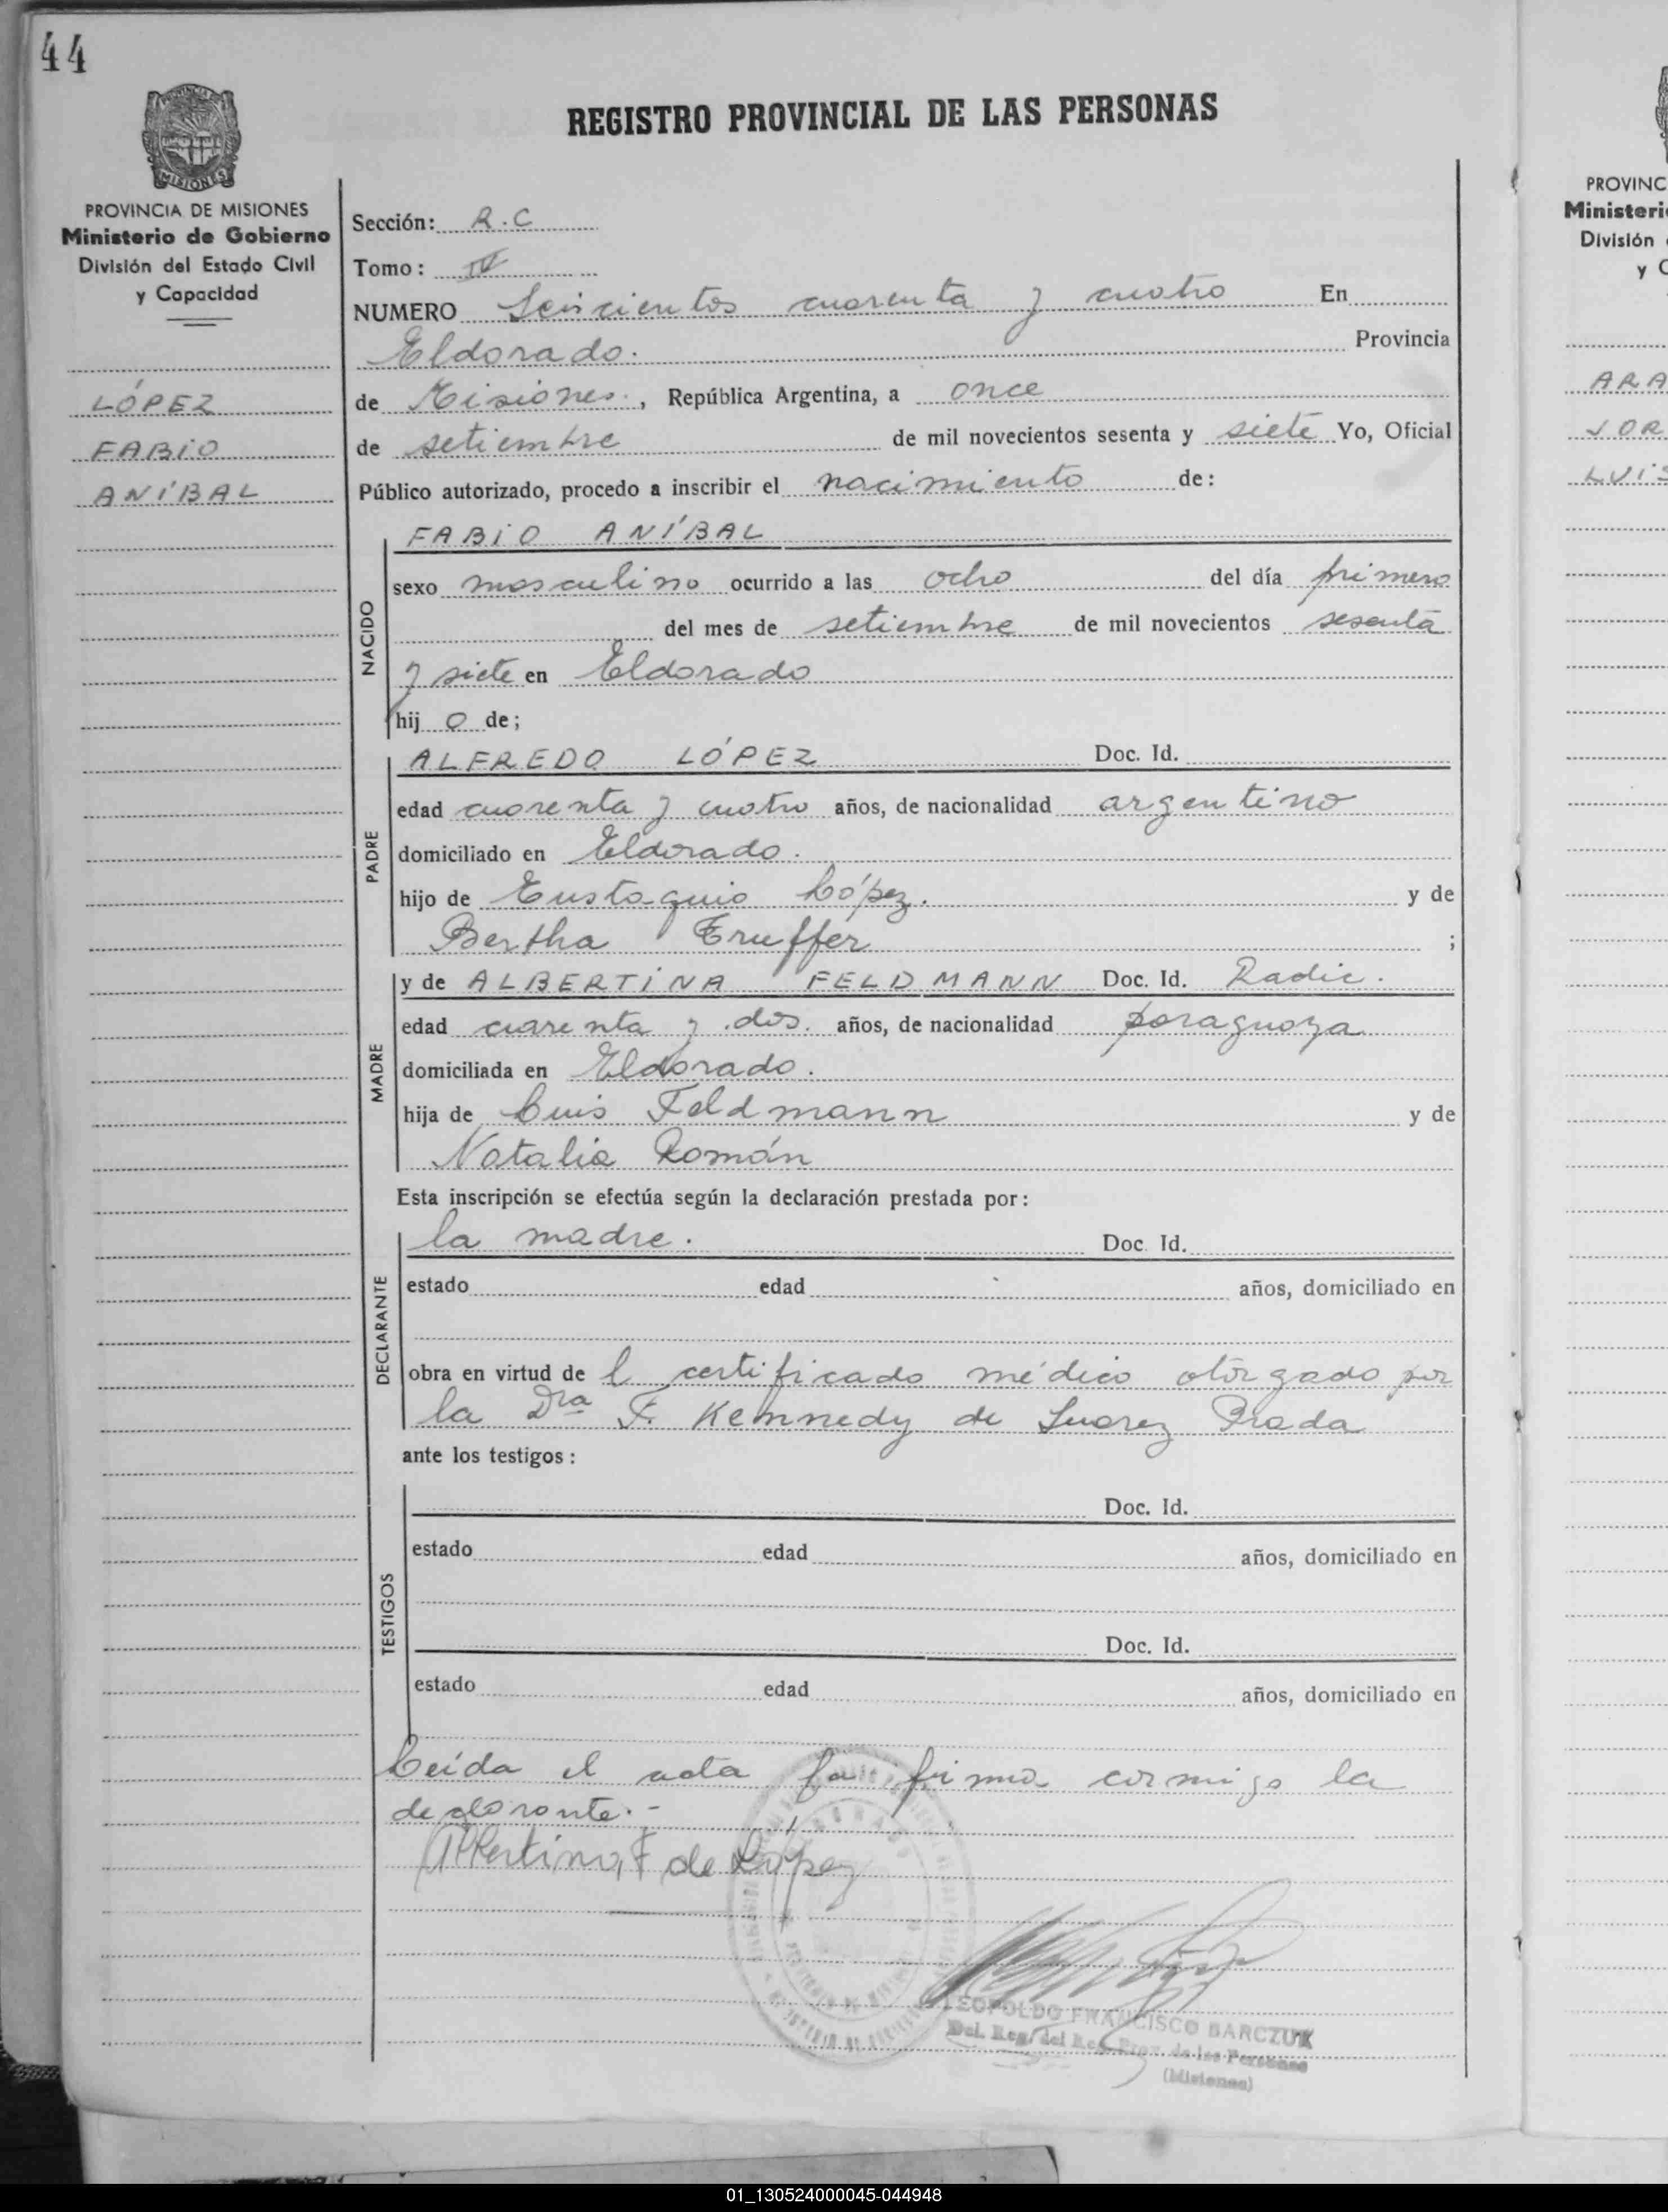 44
REGISTRO PROVINCIAL DE LAS PERSONAS
MISIONES
PROVINCIA DE MISIONES
Ministerio de Gobierno
División del Estado Civil
y Capacidad
LÓPEZ
FABIO
ANÍBAL
Sección: R.C
Tomo: IV
NUMERO Seiscientos cuarenta y cuatro En
Eldorado. Provincia
de Misiones, República Argentina, a once
de setiembre de mil novecientos sesenta y siete Yo, Oficial
Público autorizado, procedo a inscribir el nacimiento de:
NACIDO
FABIO ANÍBAL
sexo masculino ocurrido a las ocho del día primero
del mes de setiembre de mil novecientos sesenta
y siete en Eldorado
hij o de;
PADRE
ALFREDO LÓPEZ Doc. Id.
edad cuarenta y cuatro años, de nacionalidad argentino
domiciliado en Eldorado.
hijo de Eustaquio López. y de
Bertha Truffer ;
MADRE
y de ALBERTINA FELDMANN Doc. Id. Radic.
edad cuarenta y dos. años, de nacionalidad paraguaya
domiciliada en Eldorado.
hija de Luis Feldmann y de
Natalia Román
Esta inscripción se efectúa según la declaración prestada por:
DECLARANTE
la madre. Doc. Id.
estado edad años, domiciliado en
obra en virtud de l certificado médico otorgado por
la Dra F. Kennedy de Suarez Prada
ante los testigos:
TESTIGOS
Doc. Id.
estado edad años, domiciliado en
Doc. Id.
estado edad años, domiciliado en
Leída el acta la firma conmigo la
declarante.-
Albertina F de López
LEOPOLDO FRANCISCO BARCZUK
Del. Reg. del Reg. Prov. de las Personas
(Misiones)
PROVINC
Ministeri
División
y C
ARA
JOR
LUIS
01_130524000045-044948